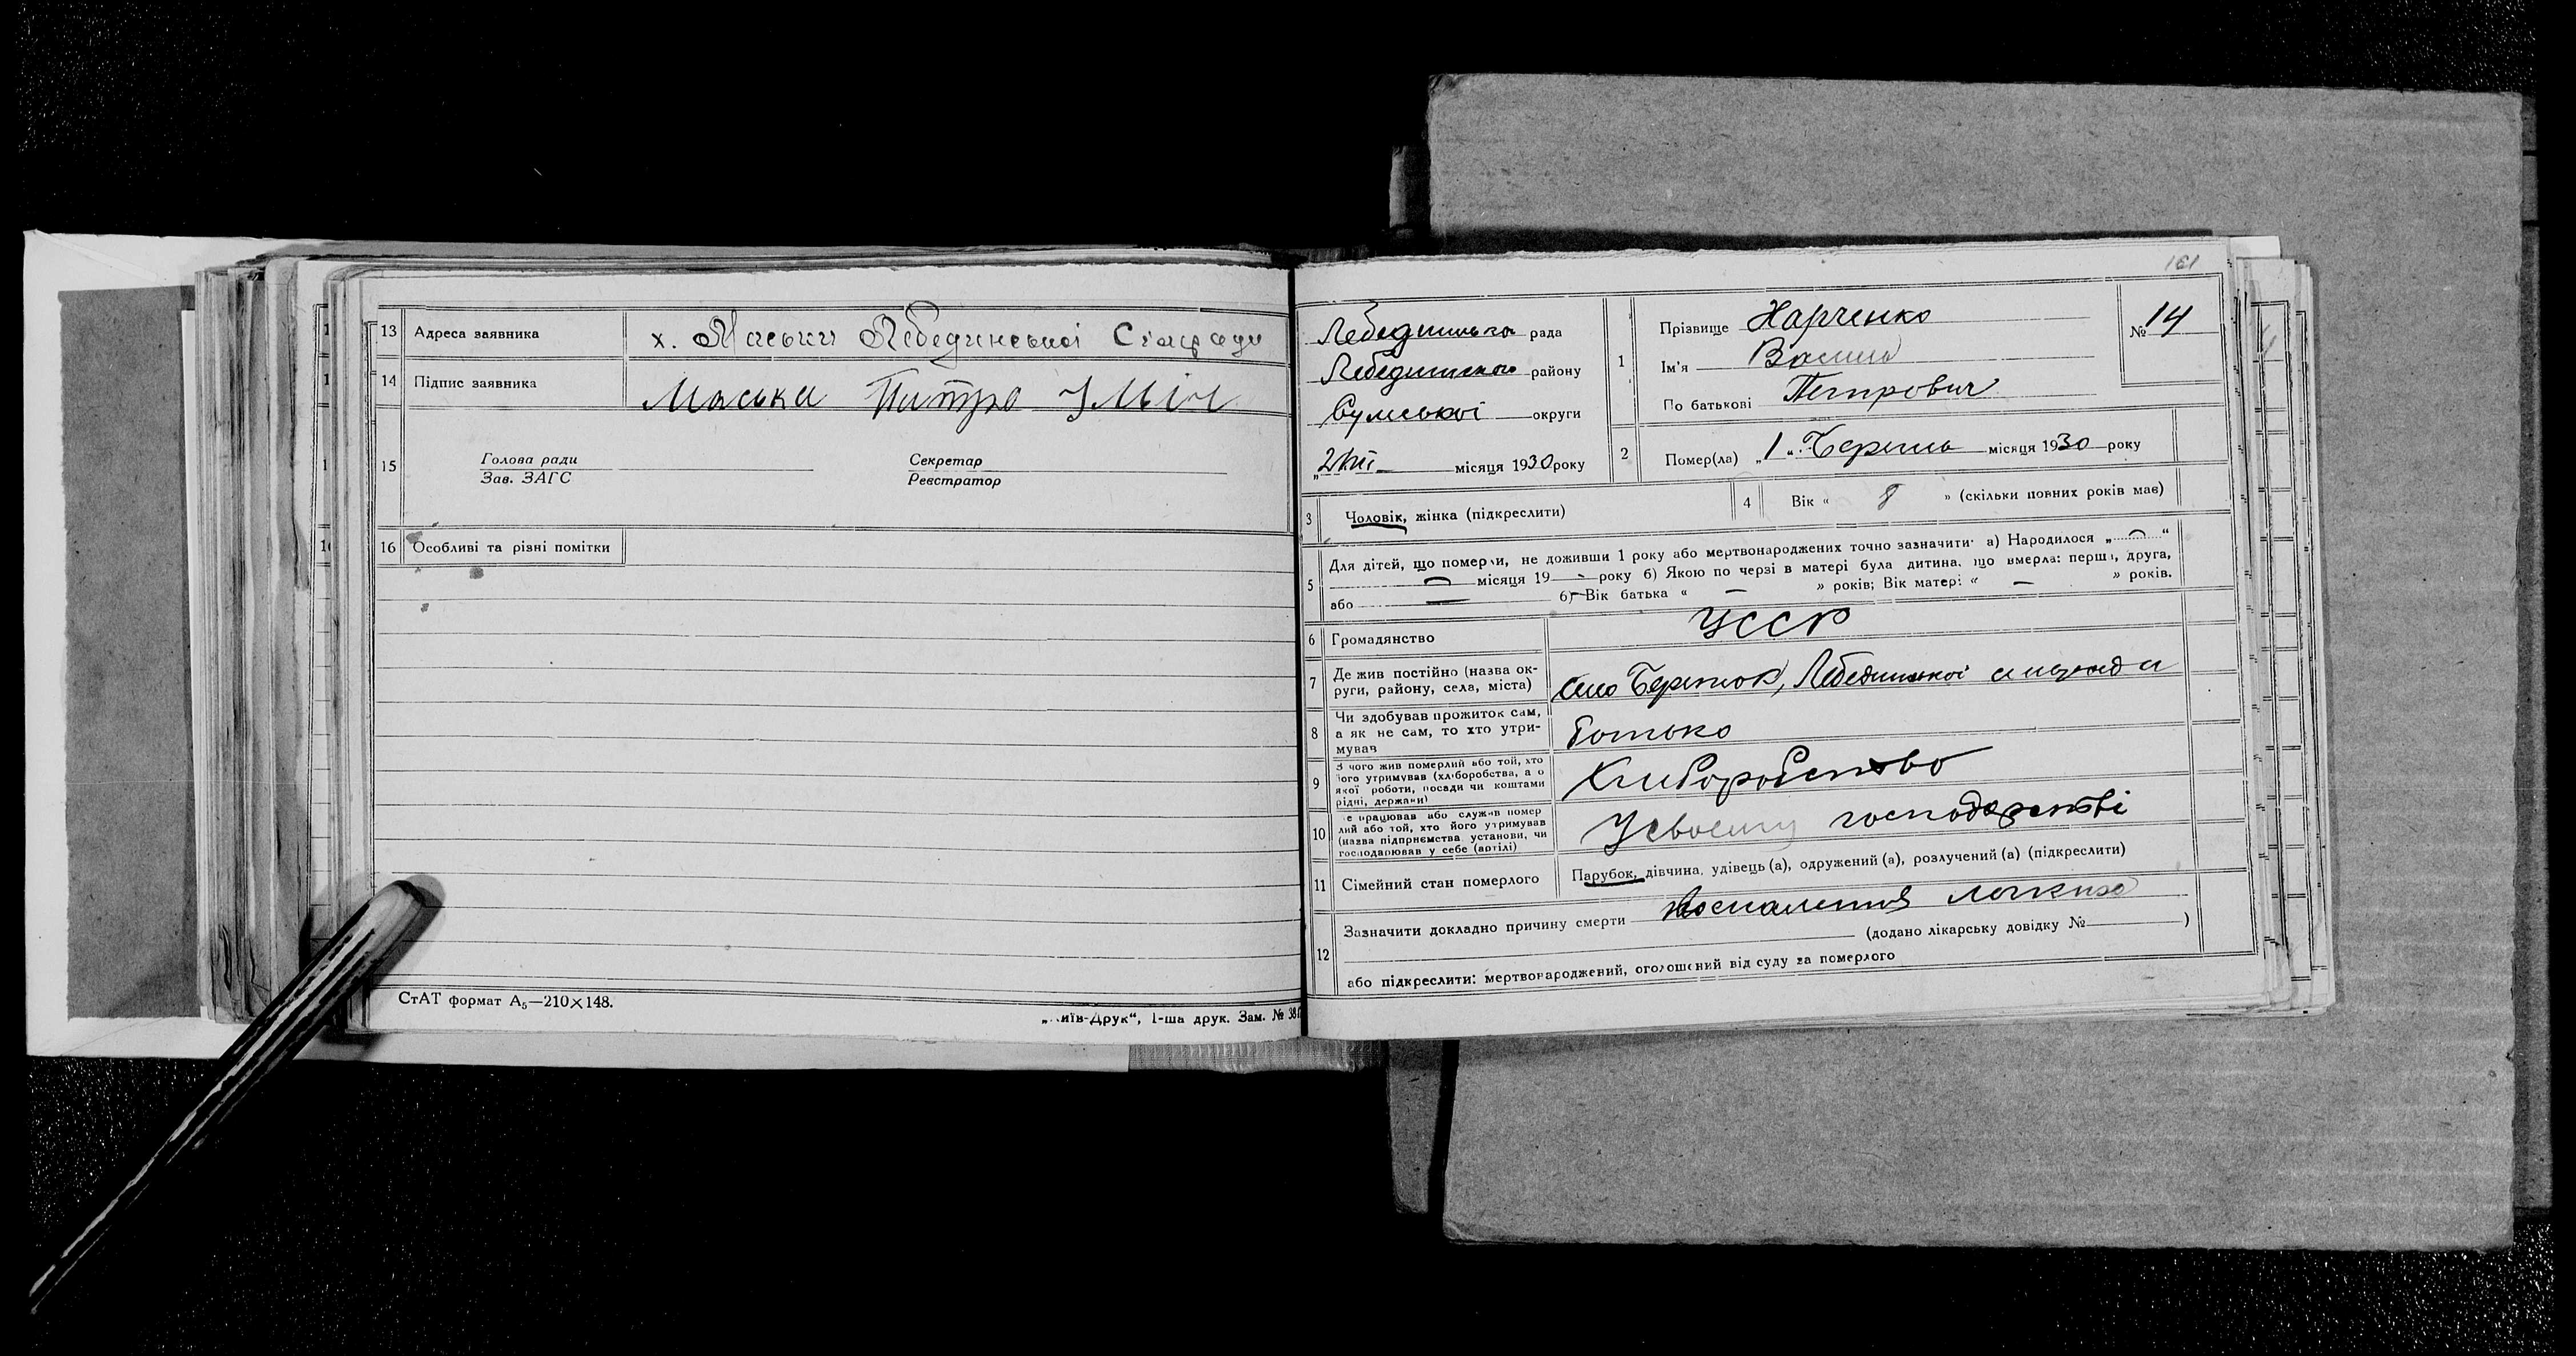 13 Адреса заявника х. Маськи Лебединської Сільради
14 Підпис заявника Маська Питро
15 Голова ради Секретар
Зав. ЗАГС Реєстратор
16 Особливі та різні помітки
СтАТ формат А₅—210×148.
„Київ-Друк“, 1-ша друк. Зам. № 38
161
Лебединська рада
Лебединського району
Сумської округи
місяця 1930 року
1 Прізвище Харченко
Ім'я
По батькові Петрович
№ 14
2 Помер(ла) „1“ місяця 1930 року
3 Чоловік, жінка (підкреслити)
4 Вік « 8 » (скільки повних років має)
5 Для дітей, що померли, не доживши 1 року або мертвонароджених точно зазначити: а) Народилося „ — “
— місяця 19 — року б) Якою по черзі в матері була дитина, що вмерла: перша, друга,
або — б) Вік батька « — » років; Вік матері « — » років.
6 Громадянство УССР
7 Де жив постійно (назва ок-
руги, району, села, міста) Лебединської
8 Чи здобував прожиток сам,
а як не сам, то хто утри-
мував батько
9 З чого жив померлий або той, хто
його утримував (хліборобства, а о
якої роботи, посади чи коштами
рідні, держави) Хліборобство
10 Де працював або служив помер
лий або той, хто його утримував
(назва підприємства установи, чи
господарював у себе (артілі) У своєму господарстві
11 Сімейний стан померлого Парубок, дівчина, удівець (а), одружений (а), розлучений (а) (підкреслити)
12 Зазначити докладно причину смерти воспаления
(додано лікарську довідку № )
або підкреслити: мертвонароджений, оголошений від суду за померлого